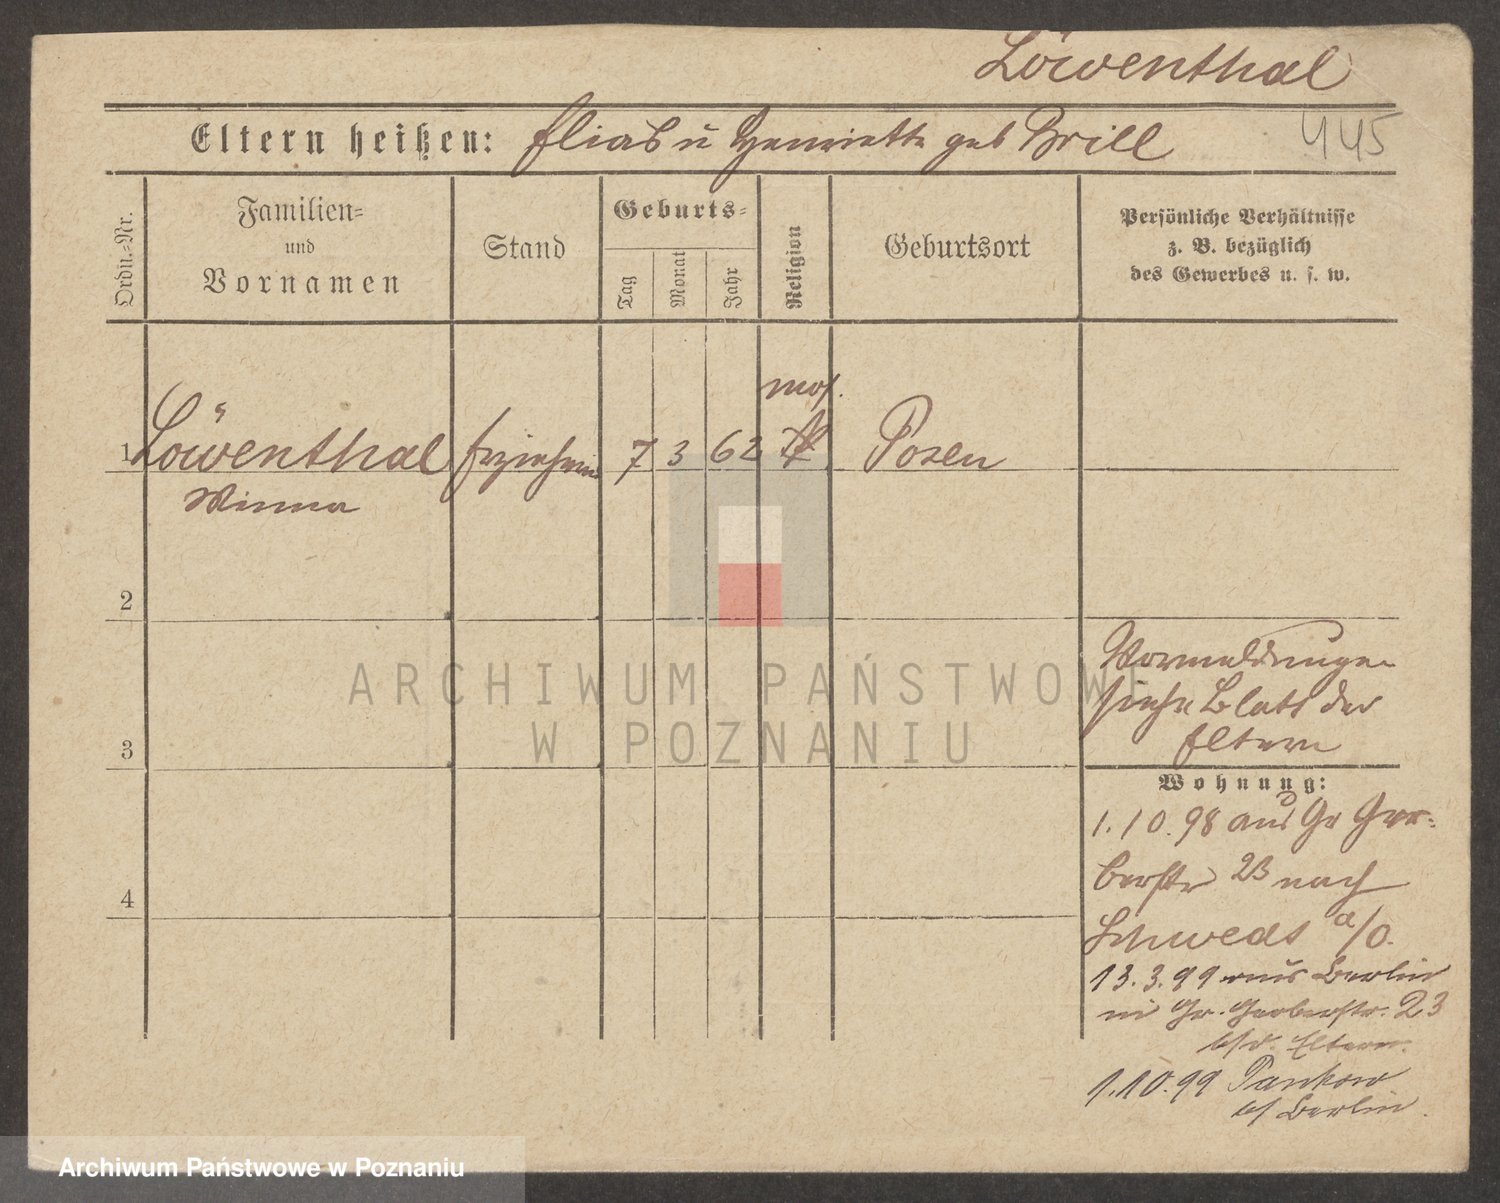 Löwenthal
445
Eltern heißen: Elias u Henriette geb Brill
Ordn.=Nr.
Familien=
und
Vornamen
Stand
Geburts=
Tag
Monat
Jahr
Religion
Geburtsort
Persönliche Verhältnisse
z. B. bezüglich
des Gewerbes u. s. w.
mos.
1 Löwenthal Erzieherin 7 3 62 Posen
Minna
2
Vormeldungen
siehe Blatt der
Eltern
3
Wohnung:
1.10.98 aus Gr Ger-
berstr 23 nach
Schwedt a/O.
4
13.3.99 aus Berlin
in Gr. Gerberstr. 23
b/d. Eltern.
1.10.99 Pankow
b/ Berlin.
ARCHIWUM PAŃSTWOWE
W POZNANIU
Archiwum Państwowe w Poznaniu